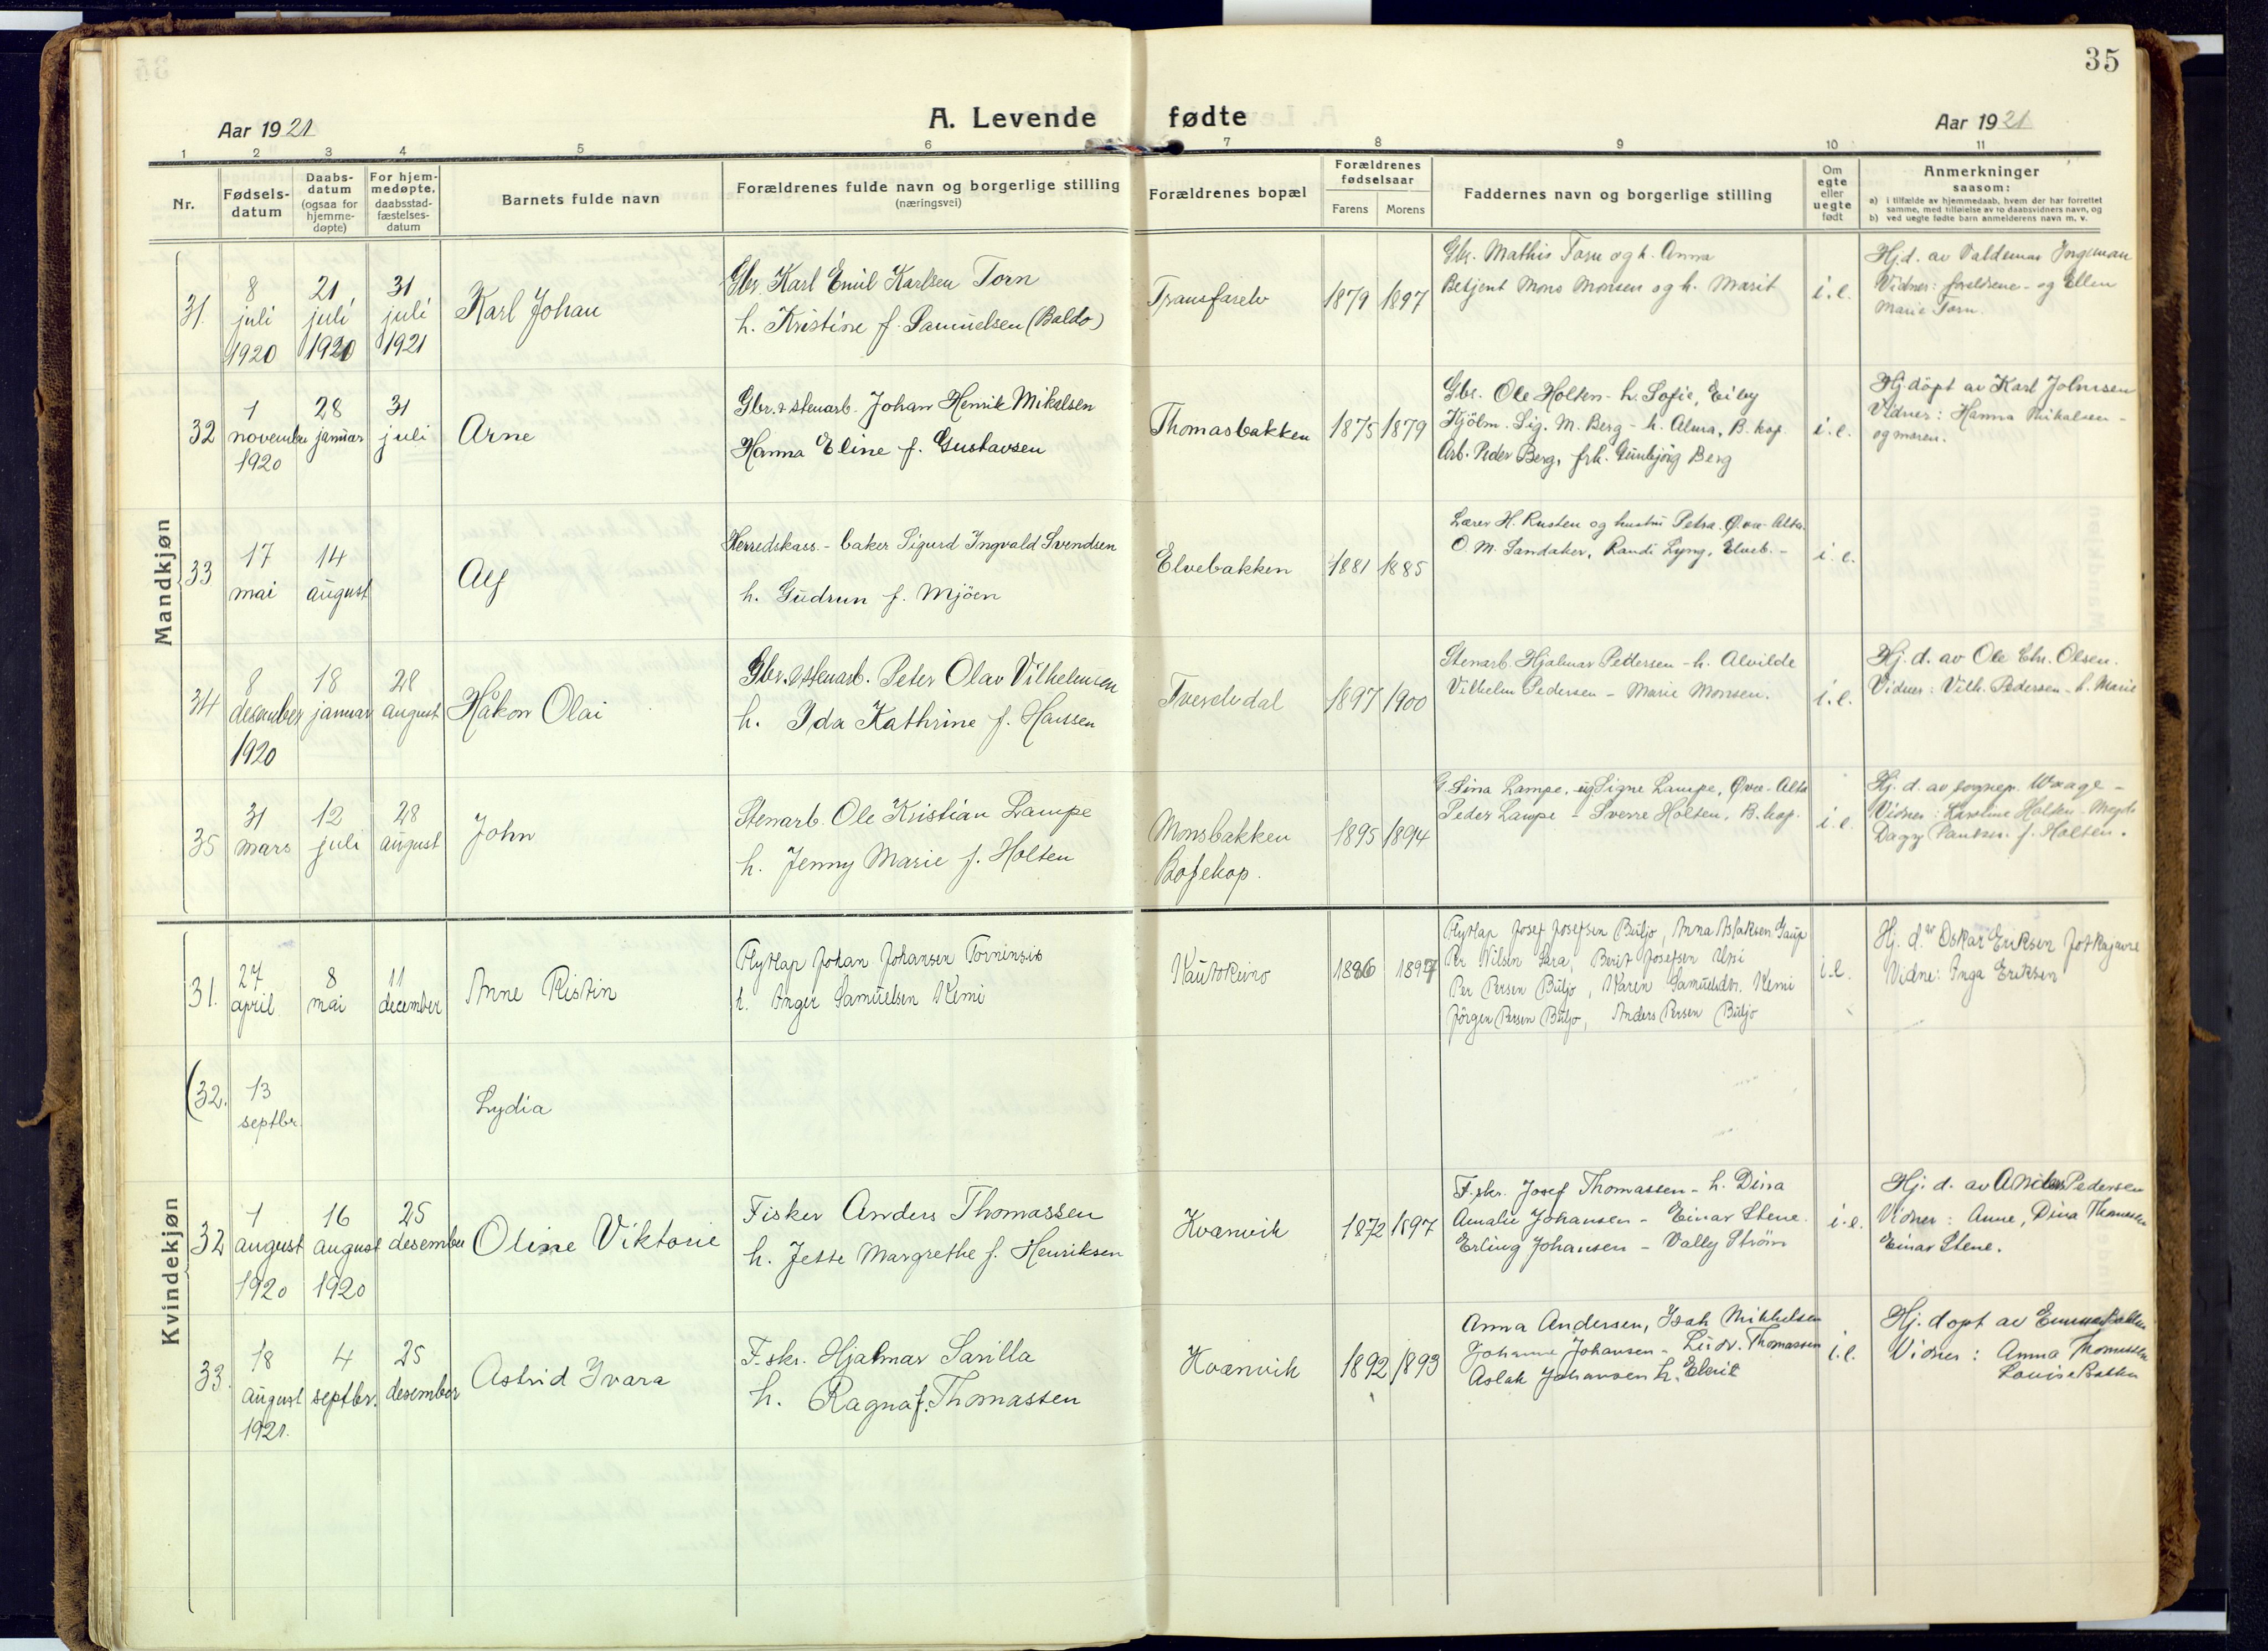 35
A. Levende fødte
Aar 1921
Aar 1921
1 2 3 4 5 6 7 8 9 10 11
Nr.
Fødsels-
datum
Daabs-
datum
(ogsaa for
hjemme-
døpte)
For hjem-
medøpte,
daabsstad-
fæstelses-
datum
Barnets fulde navn
Forældrenes fulde navn og borgerlige stilling
(næringsvei)
Forældrenes bopæl
Forældrenes
fødselsaar
Farens Morens
Faddernes navn og borgerlige stilling
Om
egte
eller
uegte
født
Anmerkninger
saasom:
a) i tilfælde av hjemmedaab, hvem der har forrettet
samme, med tilføielse av to daabsvidners navn, og
b) ved uegte fødte barn anmelderens navn m. v.
Mandkjøn
31.
8
juli
1920
21
juli
1920
31
juli
1921
Karl Johan
Gbr. Karl Emil Karlsen Torn
h. Kristine f. Samuelsen (Baldo)
Transfarelv
1879 1897
Gbr. Mathis Torn og h. Anna
Betjent Mons Monsen og h. Marit
i.e.
Hj.d. av Valdemar
Vidner: foreldrene - og Ellen
Marie Torn.
32
1
november
1920
28
januar
31
juli
Arne
Gbr. & stenarb. Johan Henrik Mikalsen
Hanna Eline f. Gustavsen
Thomasbakken
1875 1879
Gbr. Ole Holten - h. Sofie, Eiby
Kjölm. Sig. M. Berg - h. Alma, B. kop.
Arb. Peder Berg, frk. Gunbjörg Berg
i.e.
Hj.döpt av Karl Johnsen
Vidner: Hanna Mikalsen -
og moren.
33
17
mai
14
august
Alf
Herredskass. - baker Sigurd Ingvald Svendsen
h. Gudrun f. Mjöen
Elvebakken
1881 1885
Lærer H. Rusten og hustru Petra. Øvre-Alta.
O. M. Sandaker, Randi Lyng, Elveb. -
i.e.
34
8
desember
1920
18
januar
28
august
Håkon Olai
Gbr. & stenarb. Peter Olav Vilhelmsen
h. Ida Kathrine f. Hansen
Tverelvdal
1897 1900
Stenarb. Hjalmar Pedersen - h. Alvilde
Vilhelm Pedersen - Marie Monsen.
i.e.
Hj. d. av Ole Chr. Olsen.
Vidner: Vilh. Pedersen - h. Marie
35
31
mars
12
juli
28
august
John
Stenarb. Ole Kristian Lampe
h. Jenny Marie f. Holten
Monsbakken
Bossekop.
1895 1894
G. Sina Lampe, ug. Signe Lampe, Øvre-Alta
Peder Lampe - Sverre Holten, B. kop.
i.e.
Hj. d. av sognepr. Waage -
Vidner: Karoline Holten
Dagg f. Holten.
Kvindekjøn
31.
27
april
8
mai
11
december
Anne Ristin
Flytlap Johan Johansen Torninsis
h. Inger Samuelsen Kemi
Kautokeino
1886 1897
Flytlap Josef Josefsen Buljo, Anna Aslaksen Gaup
Per Nilsen Sara, Berit Josefsen Utsi
Per Persen Buljo, Karen Samuelsdtr. Kemi
Jörgen Persen Buljo, Anders Persen Buljo
i.e.
Hj. d. av Oskar Eriksen Jotkajavre
Vidne: Inga Eriksen
(32.
13
septbr.
Lydia
32
1
august
1920
16
august
1920
25
desember
Oline Viktorie
Fisker Anders Thomassen
h. Jette Margrethe f. Henriksen
Kvanvik
1872 1897
F.skr. Josef Thomassen - h. Dina
Amalie Johansen - Einar Stene.
Erling Johansen - Vally Ström
i.e.
Hj. d. av Pedersen
Vidner: Anne, Dina Thomassen
Einar Stene.
33.
18
august
1921.
4
septbr.
25
desember
Astrid Ivara
F.skr. Hjalmar Sarilla
h. Ragna f. Thomassen
Kvanvik
1892 1893
Anna Andersen, Isak Mikkelsen
Johanne Johansen - Ludv. Thomassen
Aslak Johansen h. Elerit
i.e.
Hj. døpt av
Vidner: Anna Thomassen
Louise